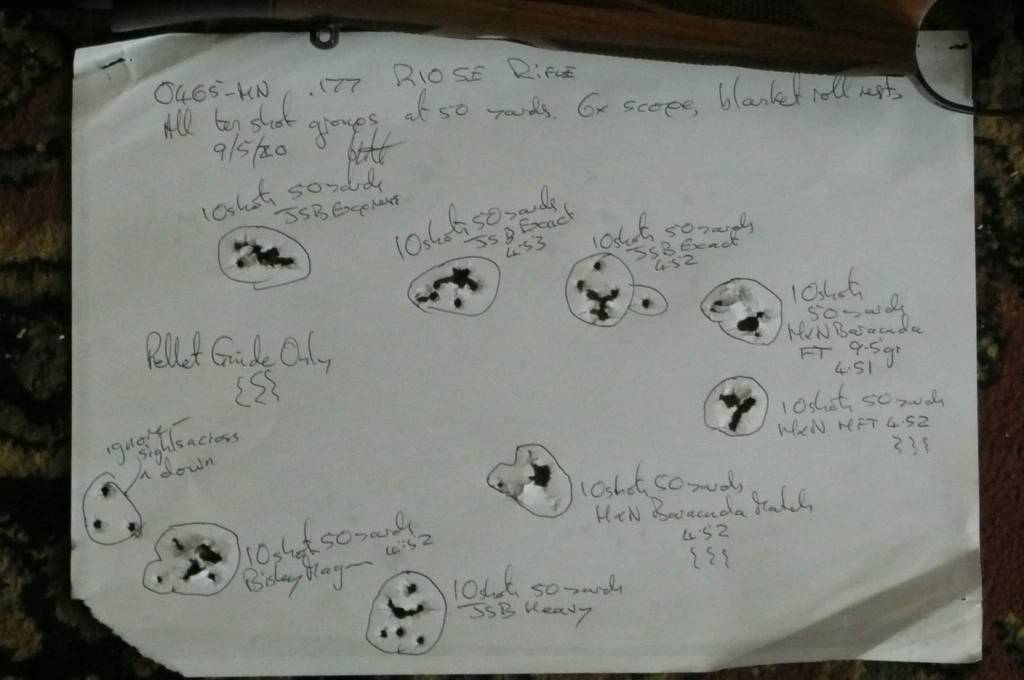 0465-MN .177 R10 SE Rifle
All ten shot groups at 50 yards. 6x scope, blanket roll rests
9/5/20
10 shots 50 yards
JSB Express
10 shots 50 yards
JSB Exact
4.53
10 shots 50 yards
JSB Exact
4.52
10 shots
50 yards
H&N Baracuda
FT 9.5gr
4.51
Pellet Guide Only
10 shots 50 yards
H&N HFT 4.52
ignore -
sights across
n down
10 shots 50 yards
H&N Baracuda Match
4.52
10 shots 50 yards
Bisley Magnum 4.52
10 shots 50 yards
JSB Heavy